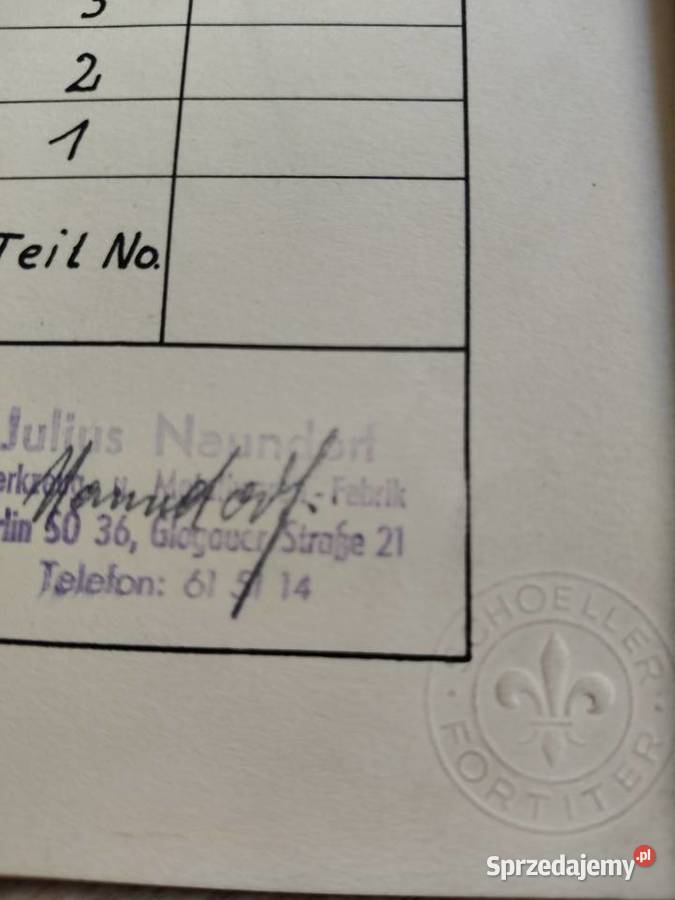 3
2
1
Teil No.
Julius Naundorf
u. -Fabrik
SO 36, Glogauer Straße 21
Telefon: 61 51 14
Naundorf.
SCHOELLER
FORTITER
Sprzedajemy.pl